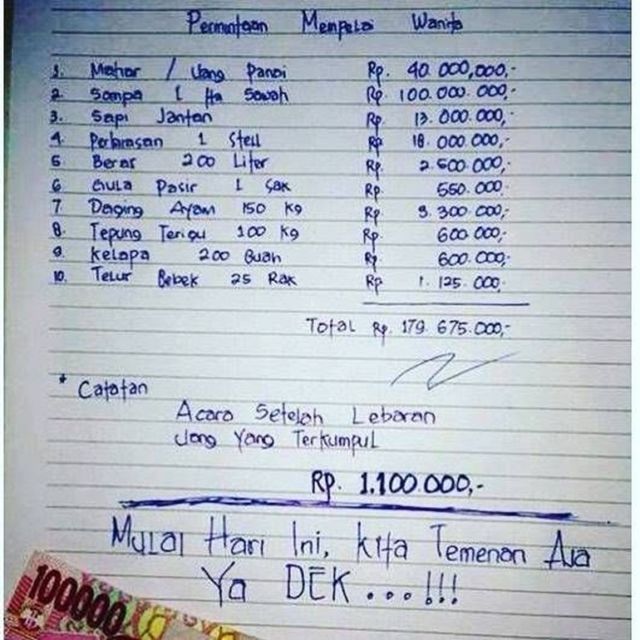 Permintaan Mempelai Wanita
1. Mahar / Uang Panai Rp. 40.000,000,-
2. Sompa 1 Ha Sawah Rp. 100.000.000,-
3. Sapi Jantan Rp 13.000.000,-
4. Perhiasan 1 Stell Rp 18.000.000,-
5 Beras 200 Liter Rp. 2.500.000,-
6 Gula Pasir 1 Sak Rp 550.000.-
7 Daging Ayam 150 Kg Rp 3.300.000,-
8. Tepung Terigu 100 Kg Rp 600.000,-
9. Kelapa 200 Buah Rp 600.000,-
10. Telur Bebek 25 Rak Rp 1.125.000,-
Total Rp. 179.675.000,-
* Catatan
Acara Setelah Lebaran
Uang Yang Terkumpul
Rp. 1.100.000,-
Mulai Hari Ini, Kita Temenan Aja
Ya DEK...!!!
100000